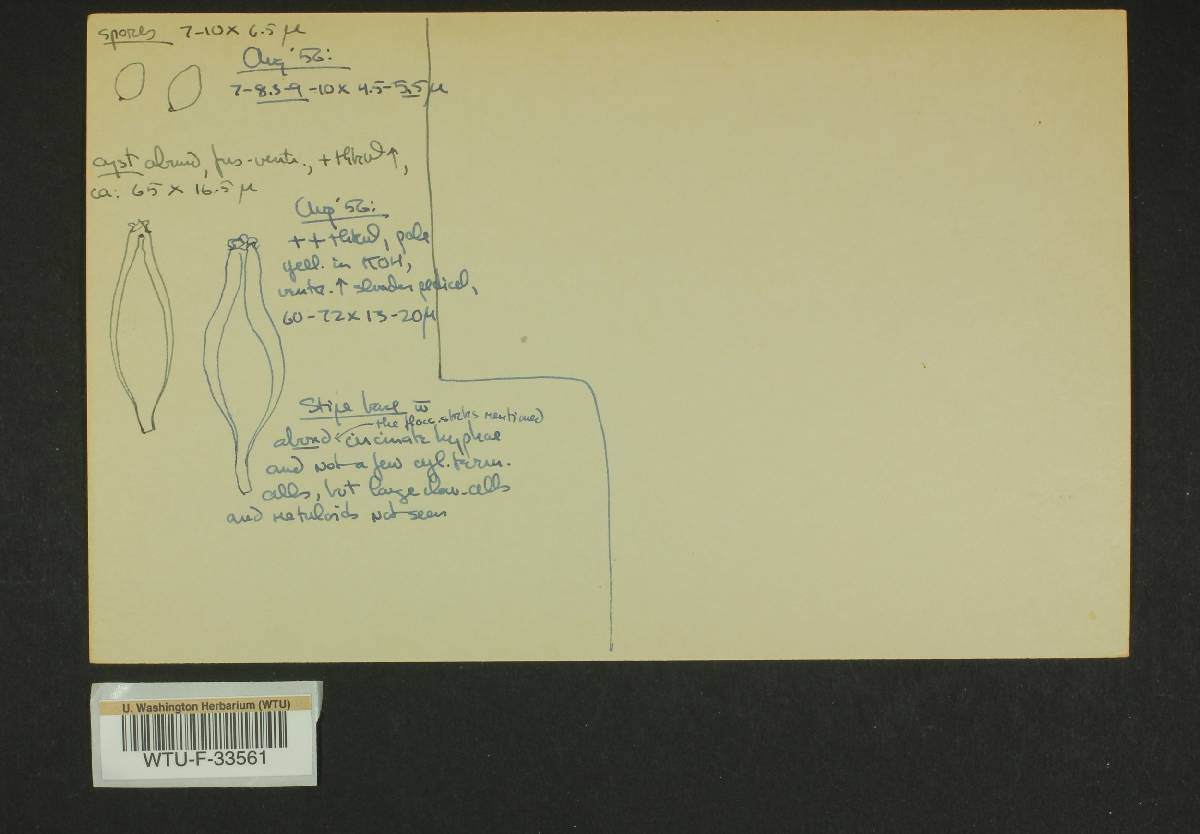 spores 7-10 x 6.5 µ
Aug '56:
7-8.5-9-10 x 4.5-5.5 µ
cyst abund, fus-ventr., + thkwl ↑,
ca: 65 x 16.5 µ
Aug '56:
+ + thkwl, pale
yell. in KOH,
ventr. ↑ slender pedicel,
60-72 x 13-20 µ
Stipe base w̅
the flocc. strks mentioned
abund circinate hyphae
and not a few cyl. term.
cells, but large clav. cells
and metuloids not seen
U. Washington Herbarium (WTU)
WTU-F-33561